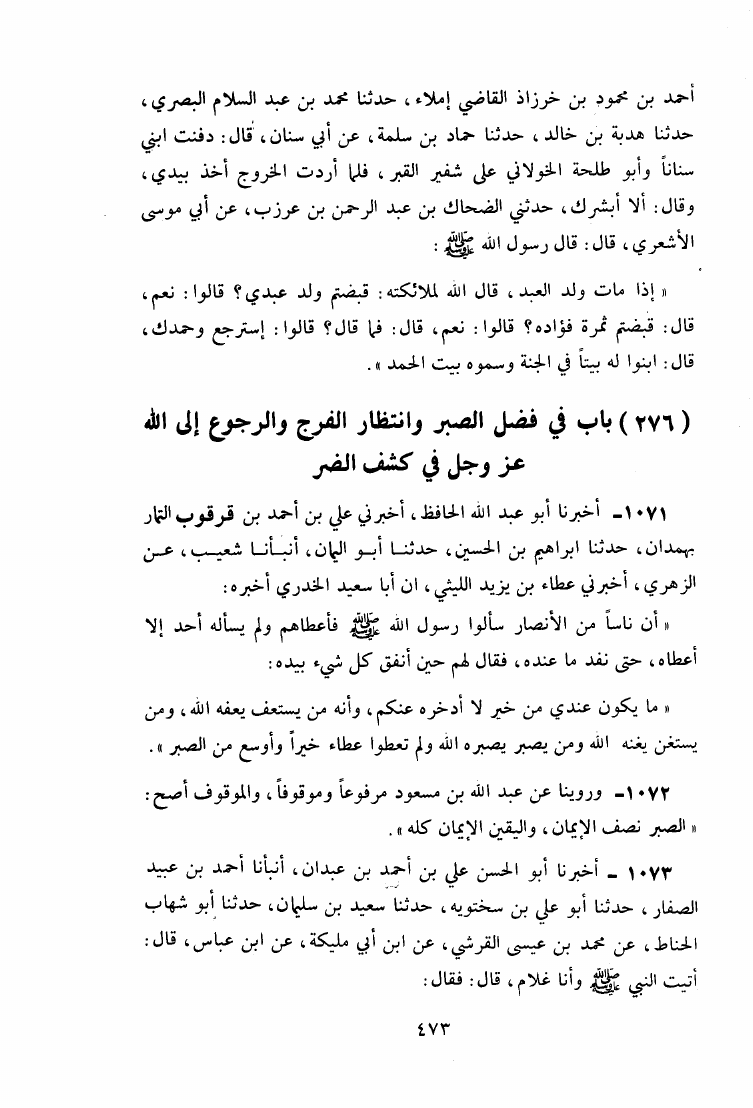 أحمد بن محمود بن خرزاذ القاضي إملاء، حدثنا محمد بن عبد السلام البصري،
حدثنا هدبة بن خالد، حدثنا حماد بن سلمة، عن أبي سنان، قال: دفنت ابني
سناناً وأبو طلحة الخولاني على شفير القبر، فلما أردت الخروج أخذ بيدي،
وقال: ألا أبشرك، حدثني الضحاك بن عبد الرحمن بن عرزب، عن أبي موسى
الأشعري، قال: قال رسول الله ﷺ:
« إذا مات ولد العبد، قال الله لملائكته: قبضتم ولد عبدي؟ قالوا: نعم،
قال: قبضتم ثمرة فؤاده؟ قالوا: نعم، قال: فما قال؟ قالوا: إسترجع وحمدك،
قال: ابنوا له بيتاً في الجنة وسموه بيت الحمد ».
(٢٧٦) باب في فضل الصبر وانتظار الفرج والرجوع إلى الله
عز وجل في كشف الضر
١٠٧١- أخبرنا أبو عبد الله الحافظ، أخبرني علي بن أحمد بن قرقوب التمار
بهمدان، حدثنا ابراهيم بن الحسين، حدثنا أبو اليمان، أنبأنا شعيب، عن
الزهري، أخبرني عطاء بن يزيد الليثي، ان أبا سعيد الخدري أخبره:
« أن ناساً من الأنصار سألوا رسول الله ﷺ فأعطاهم ولم يسأله أحد إلا
أعطاه، حتى نفد ما عنده، فقال لهم حين أنفق كل شيء بيده:
« ما يكون عندي من خير لا أدخره عنكم، وأنه من يستعف يعفه الله، ومن
يستغن يغنه الله ومن يصبر يصبره الله ولم تعطوا عطاء خيراً وأوسع من الصبر ».
١٠٧٢- وروينا عن عبد الله بن مسعود مرفوعاً وموقوفاً، والموقوف أصح:
« الصبر نصف الإيمان، واليقين الإيمان كله ».
١٠٧٣ - أخبرنا أبو الحسن علي بن أحمد بن عبدان، أنبأنا أحمد بن عبيد
الصفار، حدثنا أبو علي بن سختويه، حدثنا سعيد بن سليمان، حدثنا أبو شهاب
الحناط، عن محمد بن عيسى القرشي، عن ابن أبي مليكة، عن ابن عباس، قال:
أتيت النبي ﷺ وأنا غلام، قال: فقال:
٤٧٣